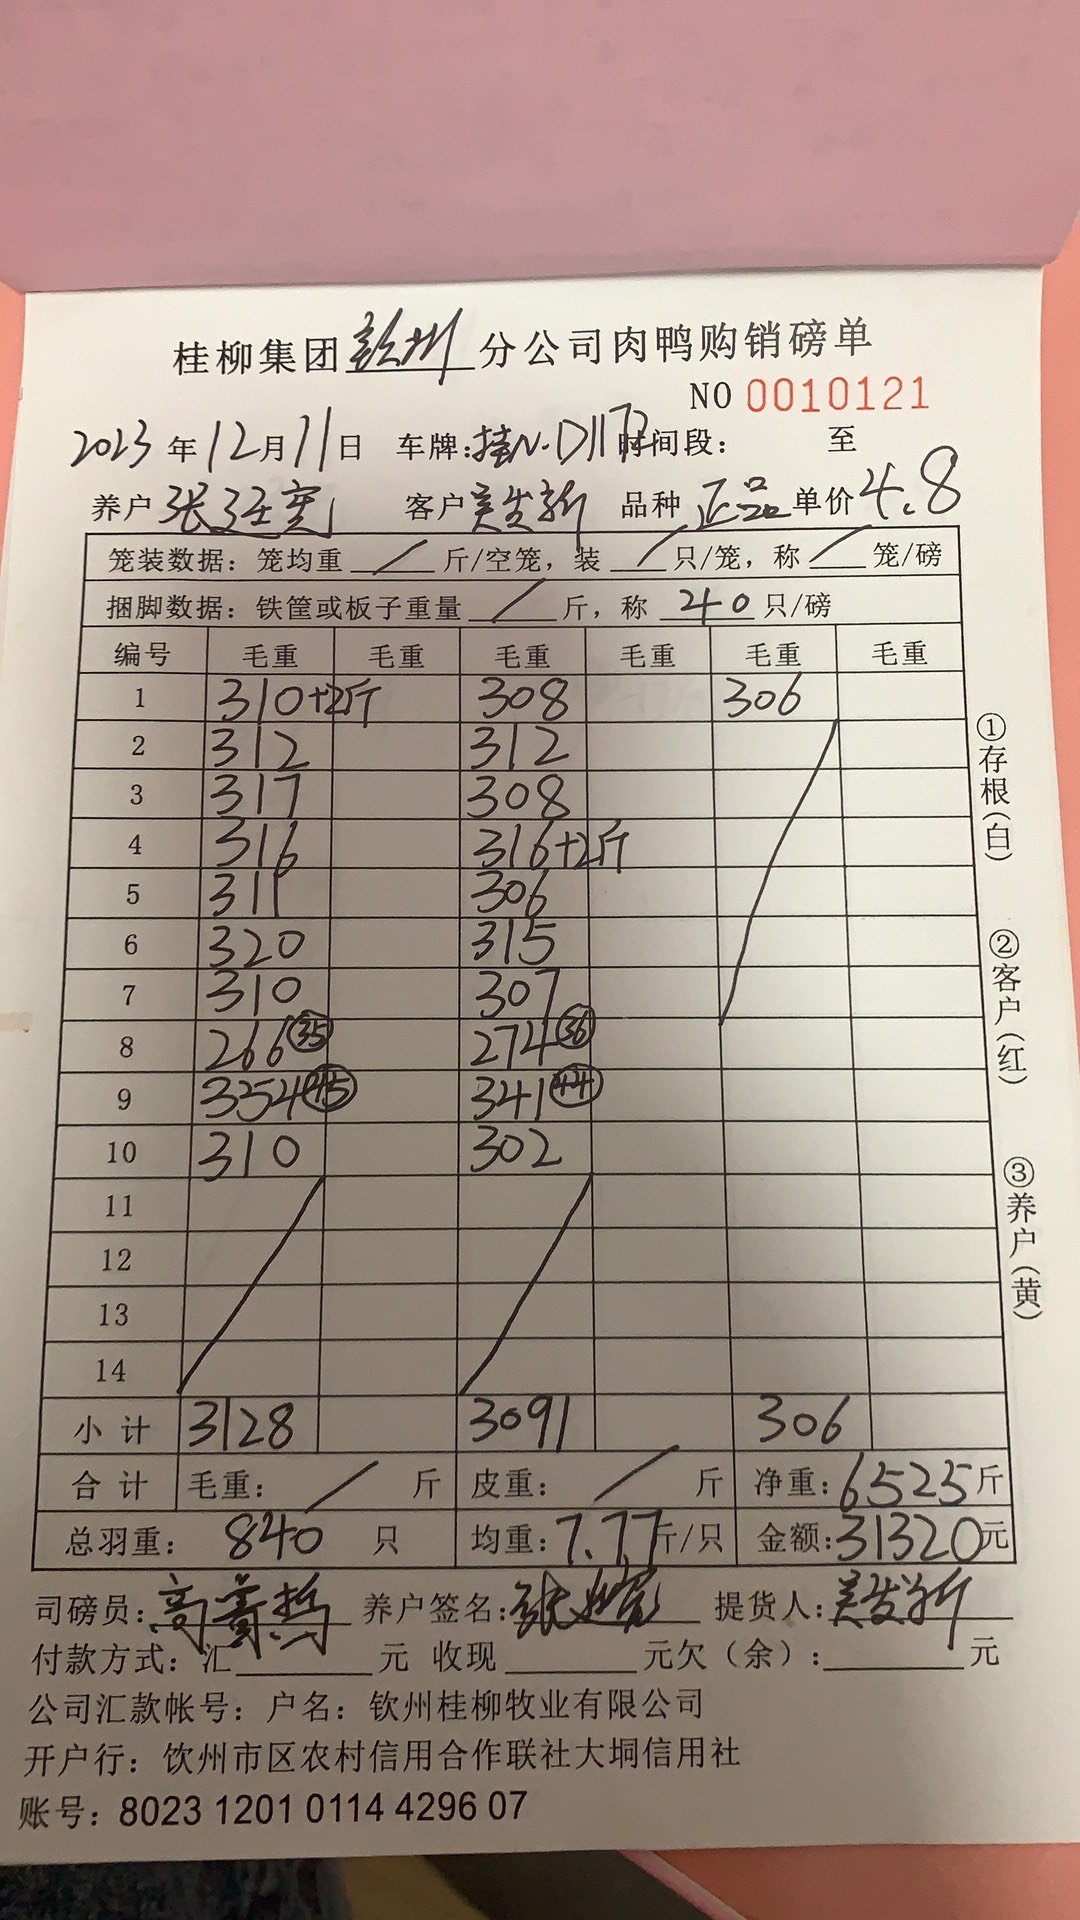 桂柳集团钦州分公司肉鸭购销磅单
NO 0010121
2023年12月11日 车牌:桂N·D1172 时间段: 至
养户 张 客户 吴发新 品种 正品 单价 4.8
笼装数据:笼均重 / 斤/空笼,装 / 只/笼,称 / 笼/磅
捆脚数据:铁筐或板子重量 / 斤,称 240 只/磅
编号 毛重 毛重 毛重 毛重 毛重 毛重
1 310+2斤 308 306
2 312 312
3 317 308
4 316 316+2斤
5 311 306
6 320 315
7 310 307
8 266 35 274 36
9 354 45 341 44
10 310 302
11
12
13
14
小计 3128 3091 306
合计 毛重: / 斤 皮重: / 斤 净重:6525斤
总羽重: 840 只 均重:7.77斤/只 金额:31320元
司磅员:高 养户签名:张 提货人:吴发新
付款方式:汇 元 收现 元欠(余): 元
公司汇款帐号:户名:钦州桂柳牧业有限公司
开户行:饮州市区农村信用合作联社大垌信用社
账号:8023 1201 0114 4296 07
①存根(白)
②客户(红)
③养户(黄)